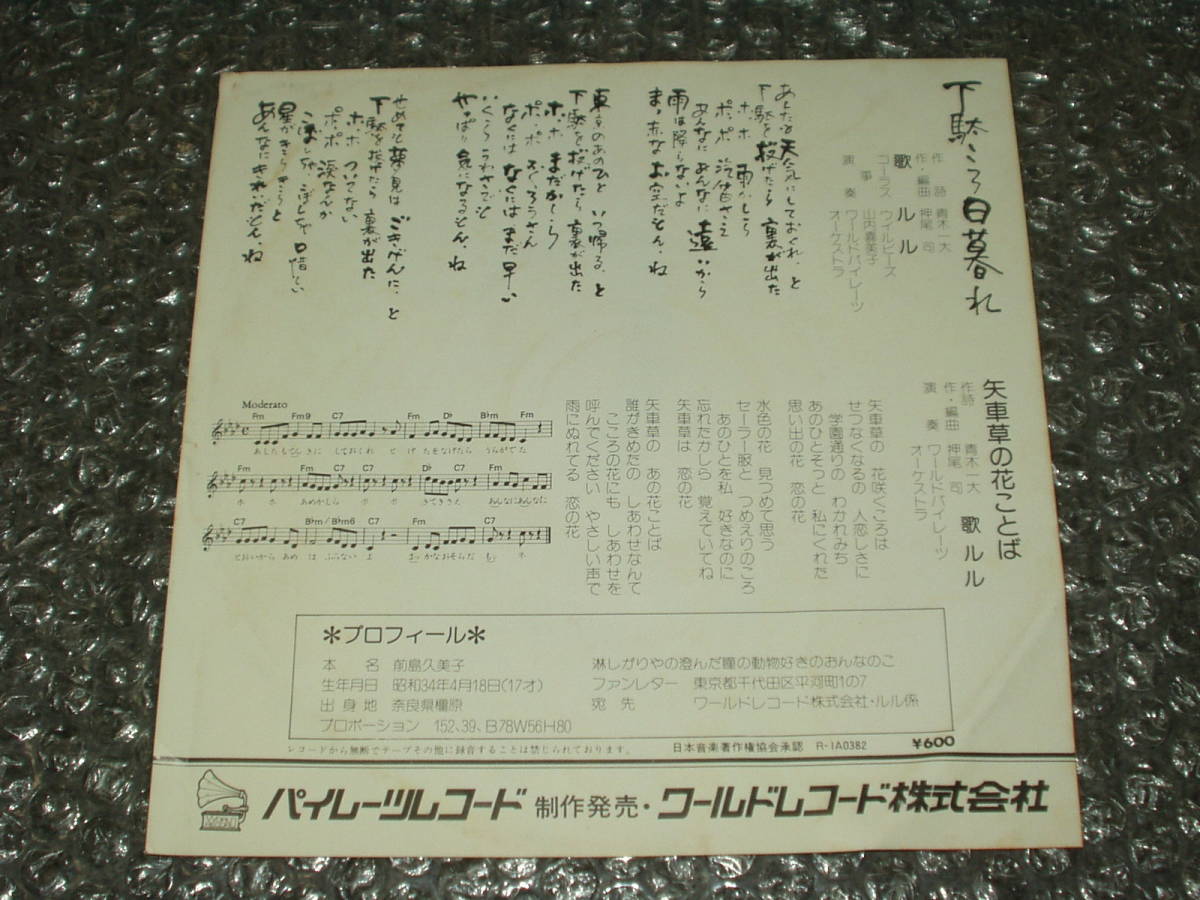 下駄ころ日暮れ
作詩 青木一大
作・編曲 押尾 司
歌 ルル
コーラス ウイルビーズ
箏 山内喜美子
演奏 ワールドパイレーツ
オーケストラ
あした天気にしておくれ、と
下駄を投げたら 裏が出た
ホ、ホ 雨かしら
ポ、ポ 汽笛さえ
あんなに あんなに 遠いから
雨は降らないよ
まっ赤なお空だもん、ね
東京のあのひと いつ帰る、と
下駄を投げたら 裏が出た
ホ、ホ まだかしら
ポ、ポ ふくろうさん
なくには なくには まだ早い
いくらうわさでも
やっぱり気になるもん、ね
せめても夢見は ごきげんに、と
下駄を投げたら 裏が出た
ホ、ホ ついてない
ポ、ポ 涙なんか
こぼしちゃ こぼしちゃ口惜しい
星がきらきらと
あんなにきれいだもん、ね
矢車草の花ことば
作詩 青木一大
作・編曲 押尾 司
歌 ルル
演奏 ワールドパイレーツ
オーケストラ
矢車草の 花咲くころは
せつなくなるの 人恋しさに
学園通りの わかれみち
あのひとそっと 私にくれた
思い出の花 恋の花
水色の花 見つめて思う
セーラー服と つめえりのころ
あのひとを私 好きなのに
忘れたかしら 覚えていてね
矢車草は 恋の花
矢車草の あの花ことば
誰がきめたの しあわせなんて
こころの花にも しあわせを
呼んでください やさしい声で
雨にぬれてる 恋の花
Moderato
Fm Fm9 C7 Fm D♭ B♭m Fm
あしたもてんきに しておくれ と げ たをなげたら うらがでた
Fm C7 Fm C7 D♭ C7 Fm
ホ ホ あめかしら ポ ポ きてきさえ あんなにあんなに
C7 B♭m/B♭m6 C7 Fm C7
とおいから あめ は ふらない よ まっ かなおそらだ も ネ
＊プロフィール＊
本名 前島久美子
生年月日 昭和34年4月18日(17才)
出身地 奈良県橿原
プロポーション 152,39,B78W56H80
淋しがりやの澄んだ瞳の動物好きのおんなのこ
ファンレター 東京都千代田区平河町1の7
宛先 ワールドレコード株式会社・ルル係
レコードから無断でテープその他に録音することは禁じられております。 日本音楽著作権協会承認 R-1A0382 ¥600
パイレーツレコード 制作発売・ワールドレコード株式会社